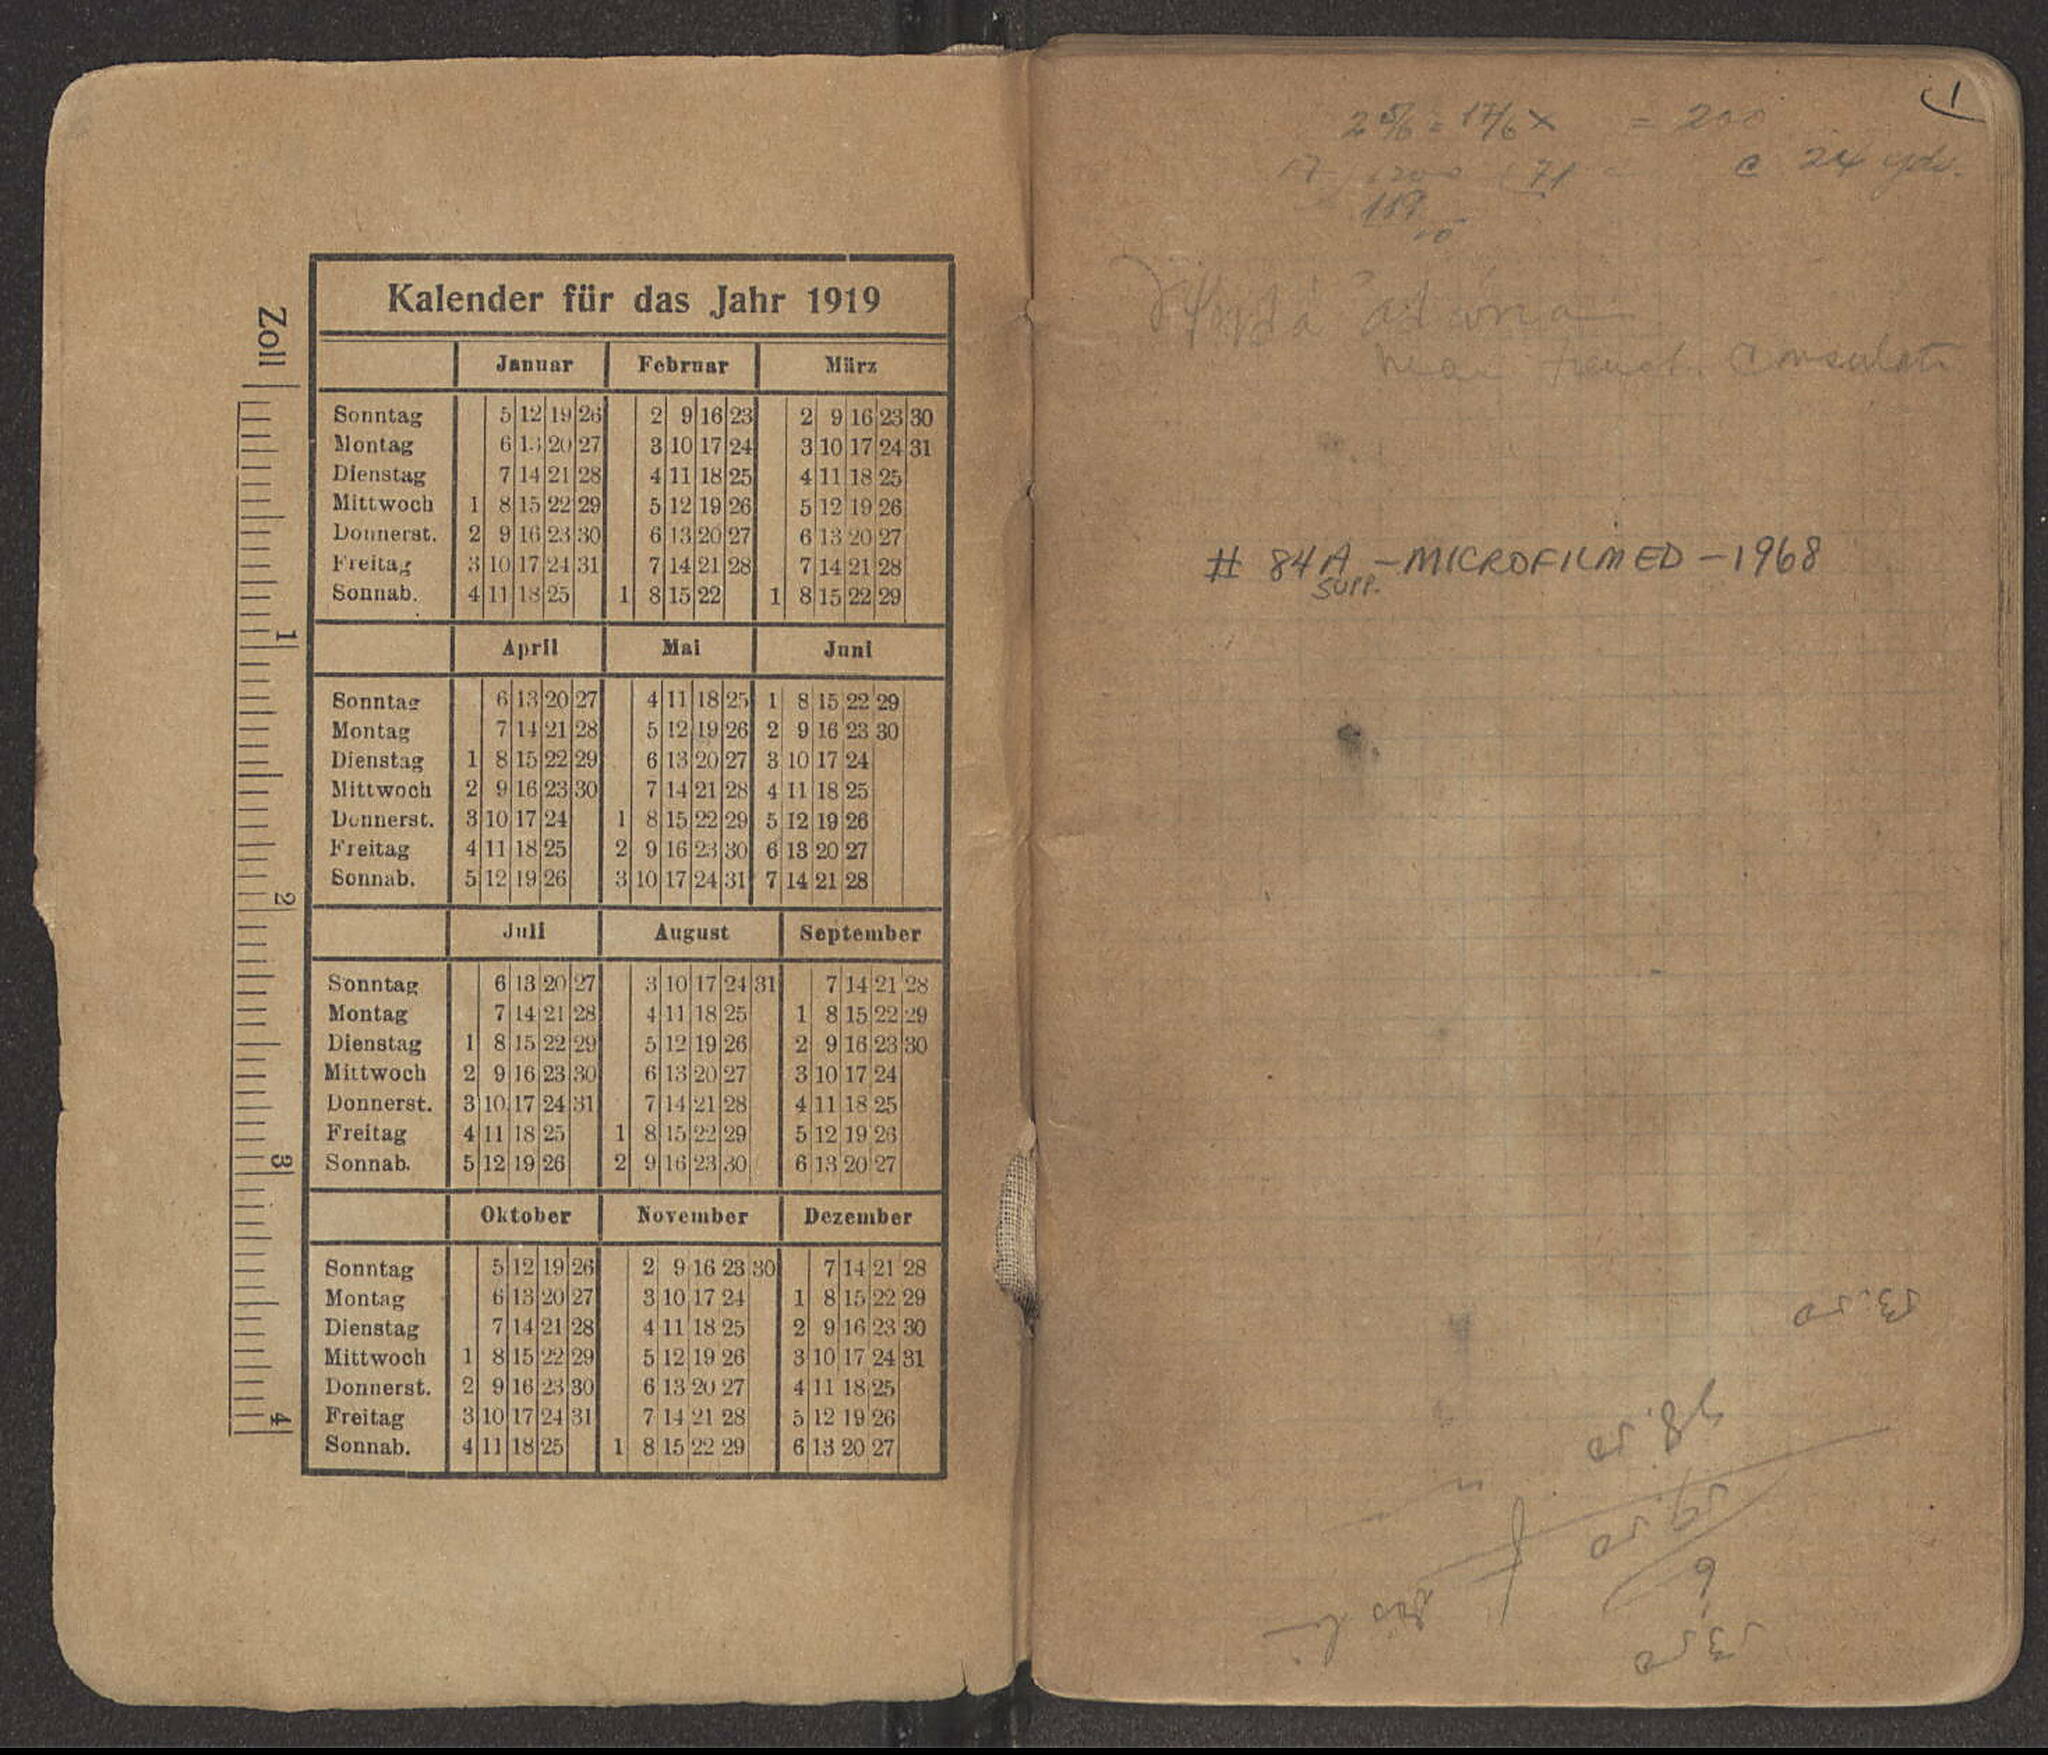 Kalender für das Jahr 1919
Zoll
1
2
3
4
Januar Februar März
Sonntag 5 12 19 26 2 9 16 23 2 9 16 23 30
Montag 6 13 20 27 3 10 17 24 3 10 17 24 31
Dienstag 7 14 21 28 4 11 18 25 4 11 18 25
Mittwoch 1 8 15 22 29 5 12 19 26 5 12 19 26
Donnerst. 2 9 16 23 30 6 13 20 27 6 13 20 27
Freitag 3 10 17 24 31 7 14 21 28 7 14 21 28
Sonnab. 4 11 18 25 1 8 15 22 1 8 15 22 29
April Mai Juni
Sonntag 6 13 20 27 4 11 18 25 1 8 15 22 29
Montag 7 14 21 28 5 12 19 26 2 9 16 23 30
Dienstag 1 8 15 22 29 6 13 20 27 3 10 17 24
Mittwoch 2 9 16 23 30 7 14 21 28 4 11 18 25
Donnerst. 3 10 17 24 1 8 15 22 29 5 12 19 26
Freitag 4 11 18 25 2 9 16 23 30 6 13 20 27
Sonnab. 5 12 19 26 3 10 17 24 31 7 14 21 28
Juli August September
Sonntag 6 13 20 27 3 10 17 24 31 7 14 21 28
Montag 7 14 21 28 4 11 18 25 1 8 15 22 29
Dienstag 1 8 15 22 29 5 12 19 26 2 9 16 23 30
Mittwoch 2 9 16 23 30 6 13 20 27 3 10 17 24
Donnerst. 3 10 17 24 31 7 14 21 28 4 11 18 25
Freitag 4 11 18 25 1 8 15 22 29 5 12 19 26
Sonnab. 5 12 19 26 2 9 16 23 30 6 13 20 27
Oktober November Dezember
Sonntag 5 12 19 26 2 9 16 23 30 7 14 21 28
Montag 6 13 20 27 3 10 17 24 1 8 15 22 29
Dienstag 7 14 21 28 4 11 18 25 2 9 16 23 30
Mittwoch 1 8 15 22 29 5 12 19 26 3 10 17 24 31
Donnerst. 2 9 16 23 30 6 13 20 27 4 11 18 25
Freitag 3 10 17 24 31 7 14 21 28 5 12 19 26
Sonnab. 4 11 18 25 1 8 15 22 29 6 13 20 27
1
2 5/6 = 17/6 x = 200
17 1200 71 c 24 yds.
119
near Consulate
# 84A - MICROFILMED - 1968
SUPP.
53.50
98.50
39.50
6
53.50